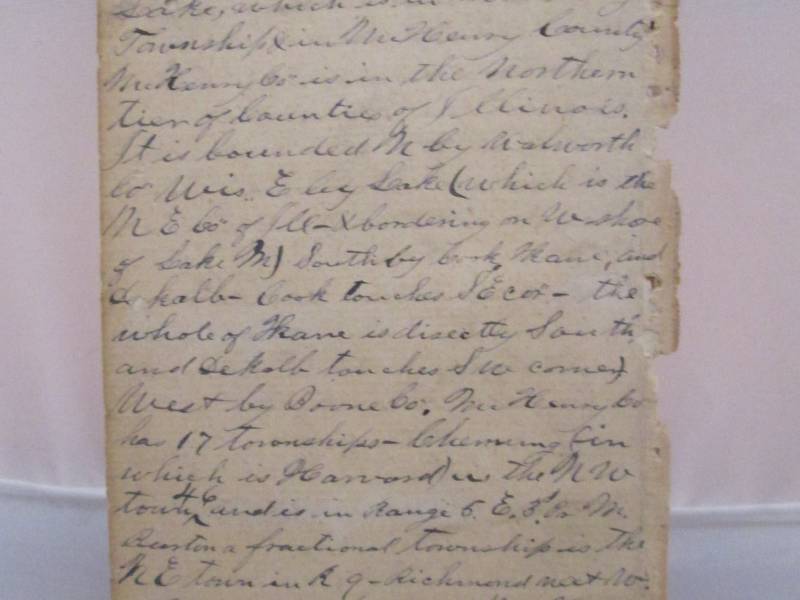 Lake, which is in
Township & in McHenry County
McHenry Co is in the Northern
tier of Counties of Illinois.
It is bounded N by Walworth
Co Wis. E by Lake (which is the
N E Co of Ill - & bordering on W shore
of Lake M) South by Cook Kane, and
DeKalb - Cook touches S E cor - the
whole of Kane is directly South
and DeKalb touches S W corner)
West by Boone Co. McHenry Co
has 17 townships - Chemung (in
which is Harvard) is the N W
town 46 and is in Range 5 E. 3d Pr M.
Burton a fractional township is the
N E town in R 9 - Richmond next W.